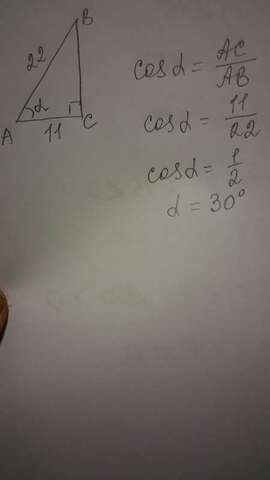 B
22
α
A
11
C
cosα = AC/AB
cosα = 11/22
cosα = 1/2
α = 30°